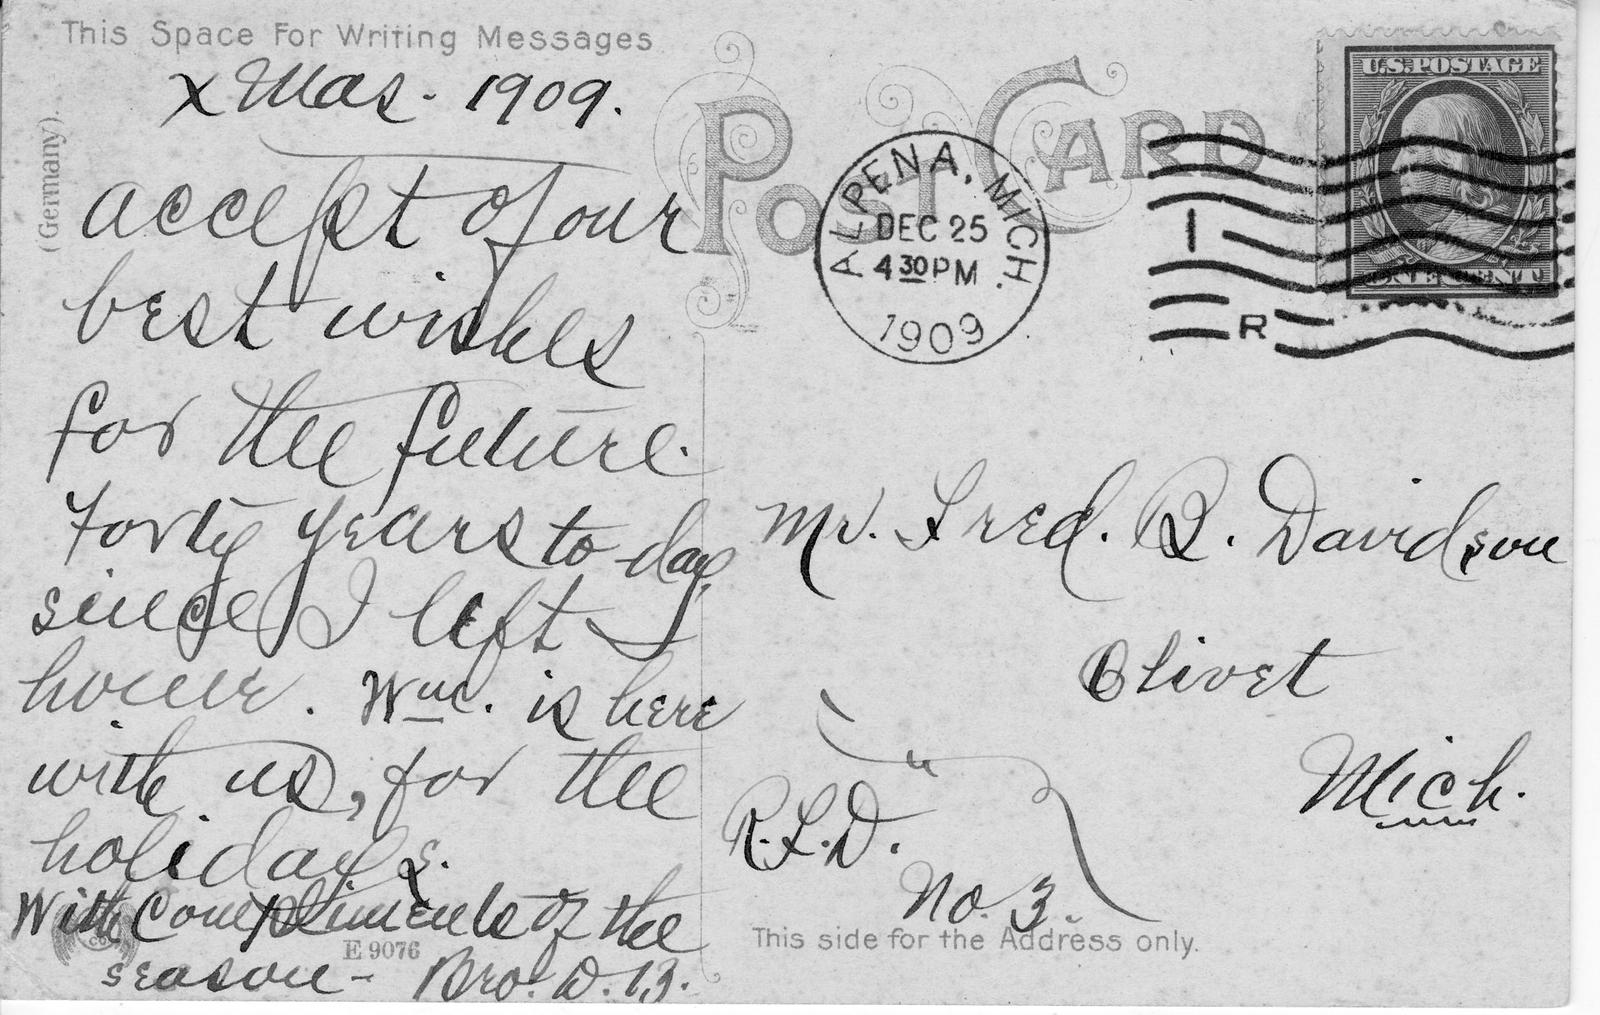 This Space For Writing Messages
Post Card
(Germany).
U.S. POSTAGE
ONE CENT
ALPENA, MICH.
DEC 25
4 30 PM
1909
1
R
xMas. 1909.
accept of our
best wishes
for the future.
Forty years to day,
since I left
home. Wm. is here
with us, for the
holidays.
With Compliments of the
season - Bro. D. B.
E 9076
Mr. Fred. B. Davidson
Olivet
Mich.
R.F.D.
No. 3.
This side for the Address only.